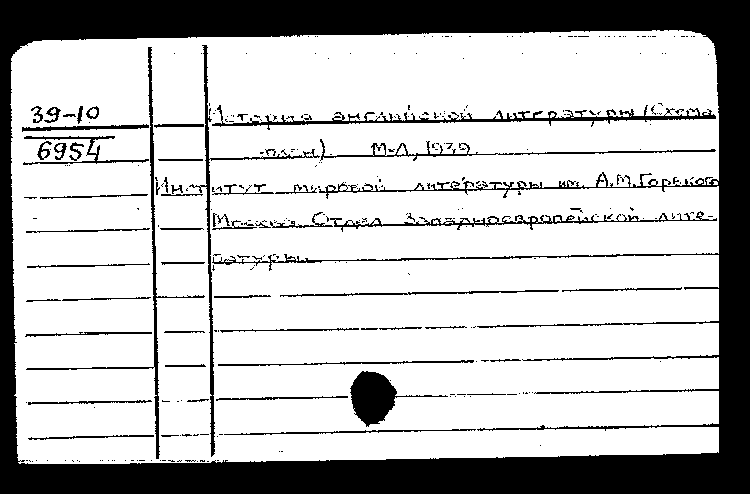 39-10
6954
История английской литературы (Схема
-план). М-Л, 1939.
Институт мировой литературы им. А.М.Горького
Москва. Отдел Западноевропейской лите-
ратуры.